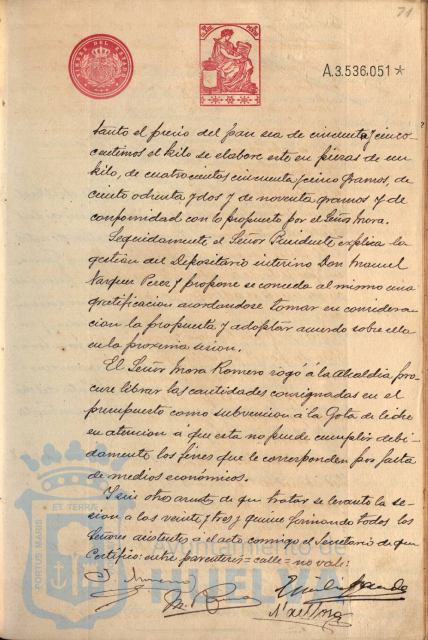 71
TIMBRE DEL ESTADO
A.3.536,051*
tanto el precio del pan sea de cincuenta y cinco
centimos el kilo se elabore este en piezas de un
kilo, de cuatrocientos cincuenta y cinco gramos, de
ciento ochenta y dos y de noventa gramos y de
conformidad con lo propuesto por el Señor Mora.
Seguidamente el Señor Presidente explica la
gestion del Depositario interino Don Manuel
Vazquez Perez y propone se conceda al mismo una
gratificacion acordandose tomar en considera-
cion la propuesta y adoptar acuerdo sobre ella
en la proxima sesion.
El Señor Mora Romero rogó á la Alcaldia pro-
cure librar las cantidades consignadas en el
presupuesto como subvencion á la Gota de leche
en atencion á que esta no puede cumplir debi-
damente los fines que le corresponden por falta
de medios económicos.
Y sin otros asuntos de que tratar se levantó la se-
sion a las veinte y tres y quince firmando todos los
Señores asistentes al acto conmigo el Secretario de que
Certifico: entre parentesis = calle = no vale:
PORTUS MARIS
ET TERRAE
Ayuntamiento de
HUELVA